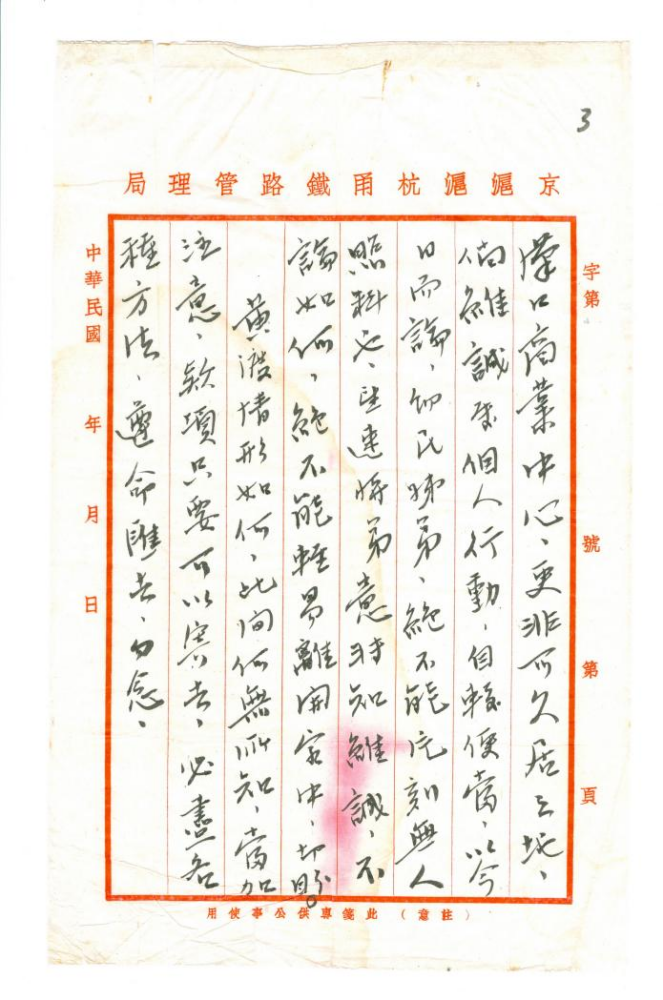 3
京滬滬杭甬鐵路管理局
字第 號第 頁
漢口商業中心、更非可久居之地、
倘維誠另個人行動、自較便當、以今
日而論、幼民姊弟、絕不能片刻無人
照料也、望速將弟意轉知維誠、不
論如何、絕不能輕易離開家中、切盼。
黃渡情形如何、此間仍無所知、當加
注意、款項只要可以寄去、必盡各
種方法、遵命匯去、勿念、
中華民國 年 月 日
(注意)此箋專供公事使用